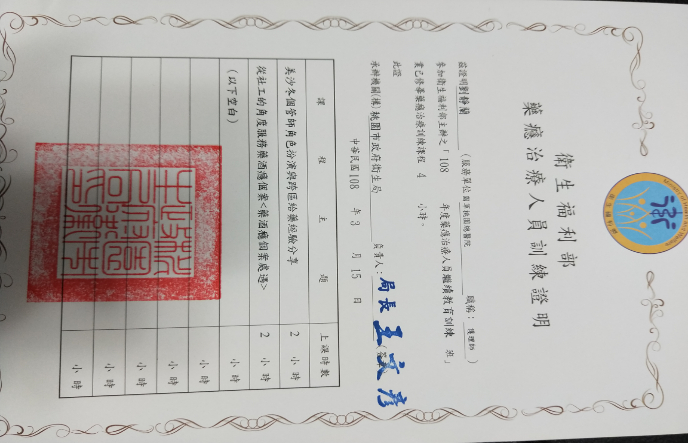 衛生福利部
藥癮治療人員訓練證明
茲證明劉靜蘭（服務單位國軍桃園總醫院 職稱：護理師）
參加衛生福利部主辦之「108 年度藥癮治療人員繼續教育訓練 班」
業已修畢藥癮治療訓練課程 4 小時。
此證
承辦機關(構)桃園市政府衛生局 負責人：局長王文彥
中華民國108 年 3 月 15 日
課程主題 上課時數
美沙冬個管師角色扮演與跨區給藥經驗分享 2 小時
從社工的角度服務藥酒癮個案<藥酒癮個案處遇> 2 小時
（以下空白） 小時
小時
小時
小時
小時